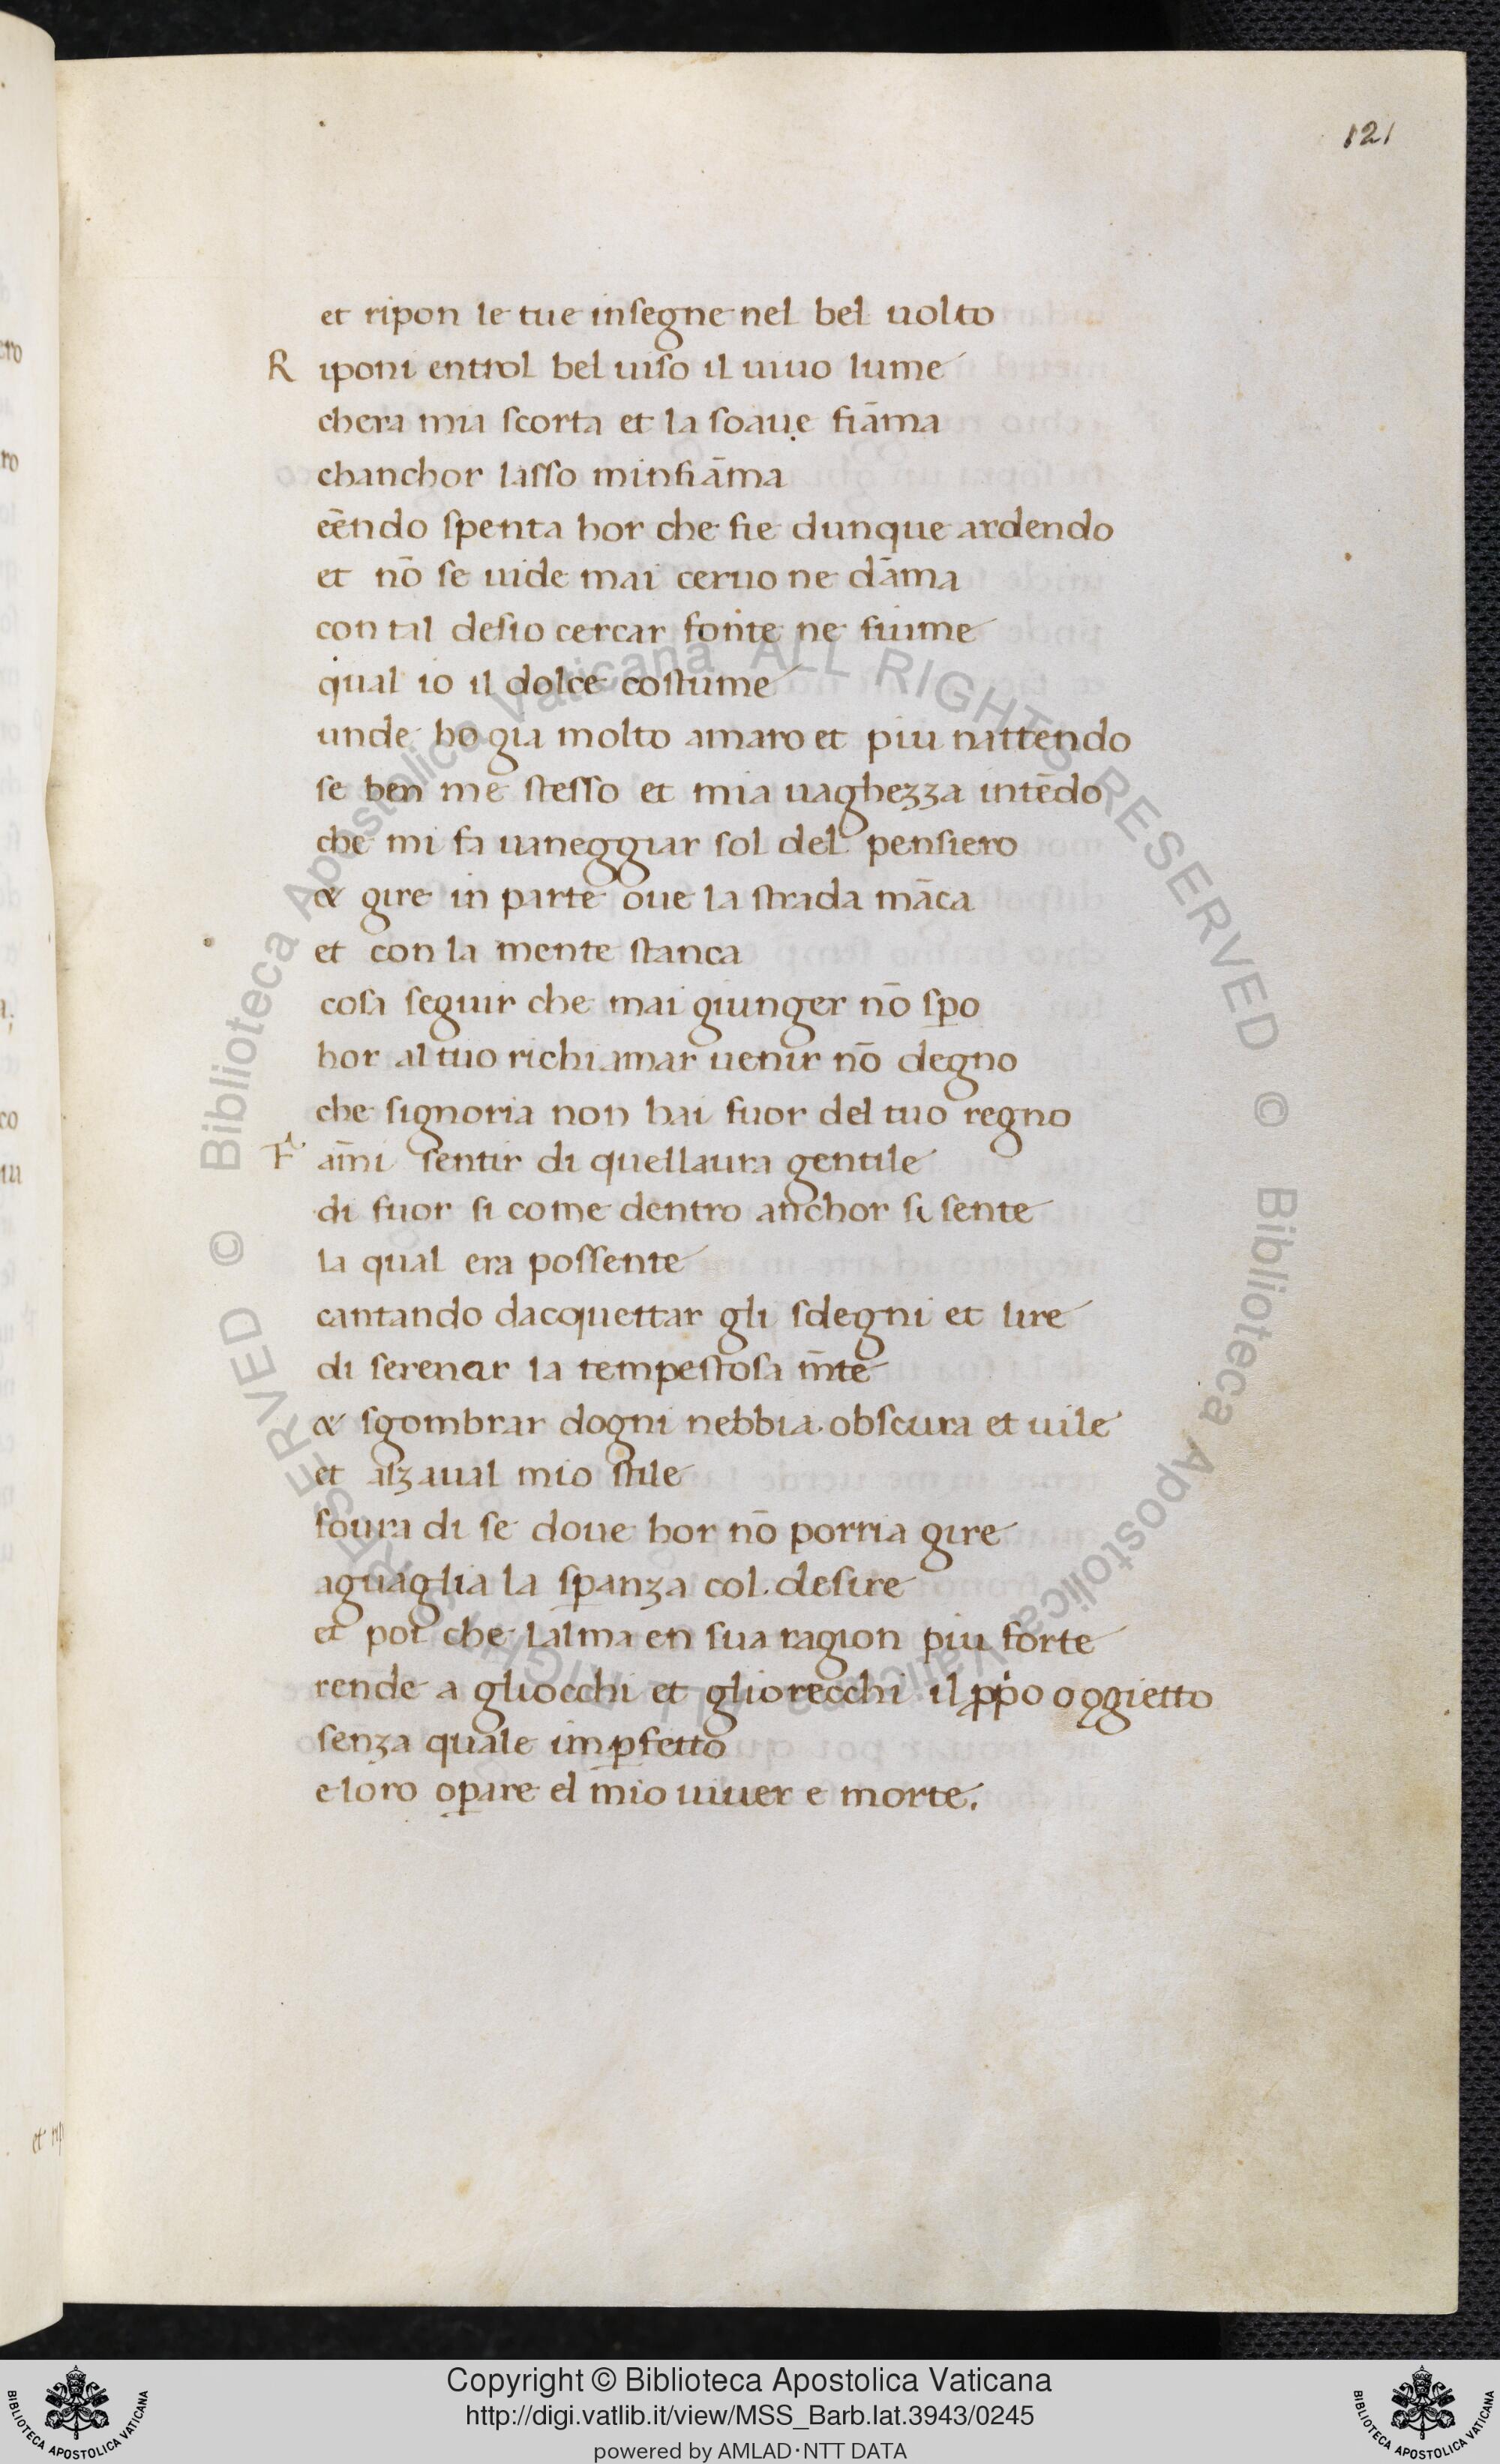 121
et ripon le tue insegne nel bel uolto
R iponi entrol bel uiso il uiuo lume
chera mia scorta et la soaue fiāma
chanchor lasso minfiāma
eēndo spenta hor che fie dunque ardendo
et nō se uide mai ceruo ne dāma
con tal desio cercar fonte ne fiume
qual io il dolce costume
unde ho gia molto amaro et piu nattendo
se ben me stesso et mia uaghezza intēdo
che mi fa uaneggiar sol del pensiero
& gire in parte oue la strada māca
et con la mente stanca
cosa seguir che mai giunger nō sꝑo
hor al tuo richiamar uenir nō degno
che signoria non hai fuor del tuo regno
F am̄i sentir di quellaura gentile
di fuor si come dentro anchor si sente
la qual era possente
cantando dacquettar gli sdegni et lire
di serenar la tempestosa m̄te
& sgombrar dogni nebbia obscura et uile
et alzaual mio stile
soura di se doue hor nō porria gire
aguaglia la sꝑanza col desire
et poi che lalma en sua ragion piu forte
rende a gliocchi et gliorecchi il ꝓpͥo oggietto
senza quale imꝑfetto
e loro oꝑare el mio uiuer e morte.
et rip
Biblioteca Apostolica Vaticana ALL RIGHTS RESERVED ©
Biblioteca Apostolica Vaticana ALL RIGHTS RESERVED ©
Copyright © Biblioteca Apostolica Vaticana
http://digi.vatlib.it/view/MSS_Barb.lat.3943/0245
powered by AMLAD·NTT DATA
BIBLIOTECA APOSTOLICA VATICANA
BIBLIOTECA APOSTOLICA VATICANA